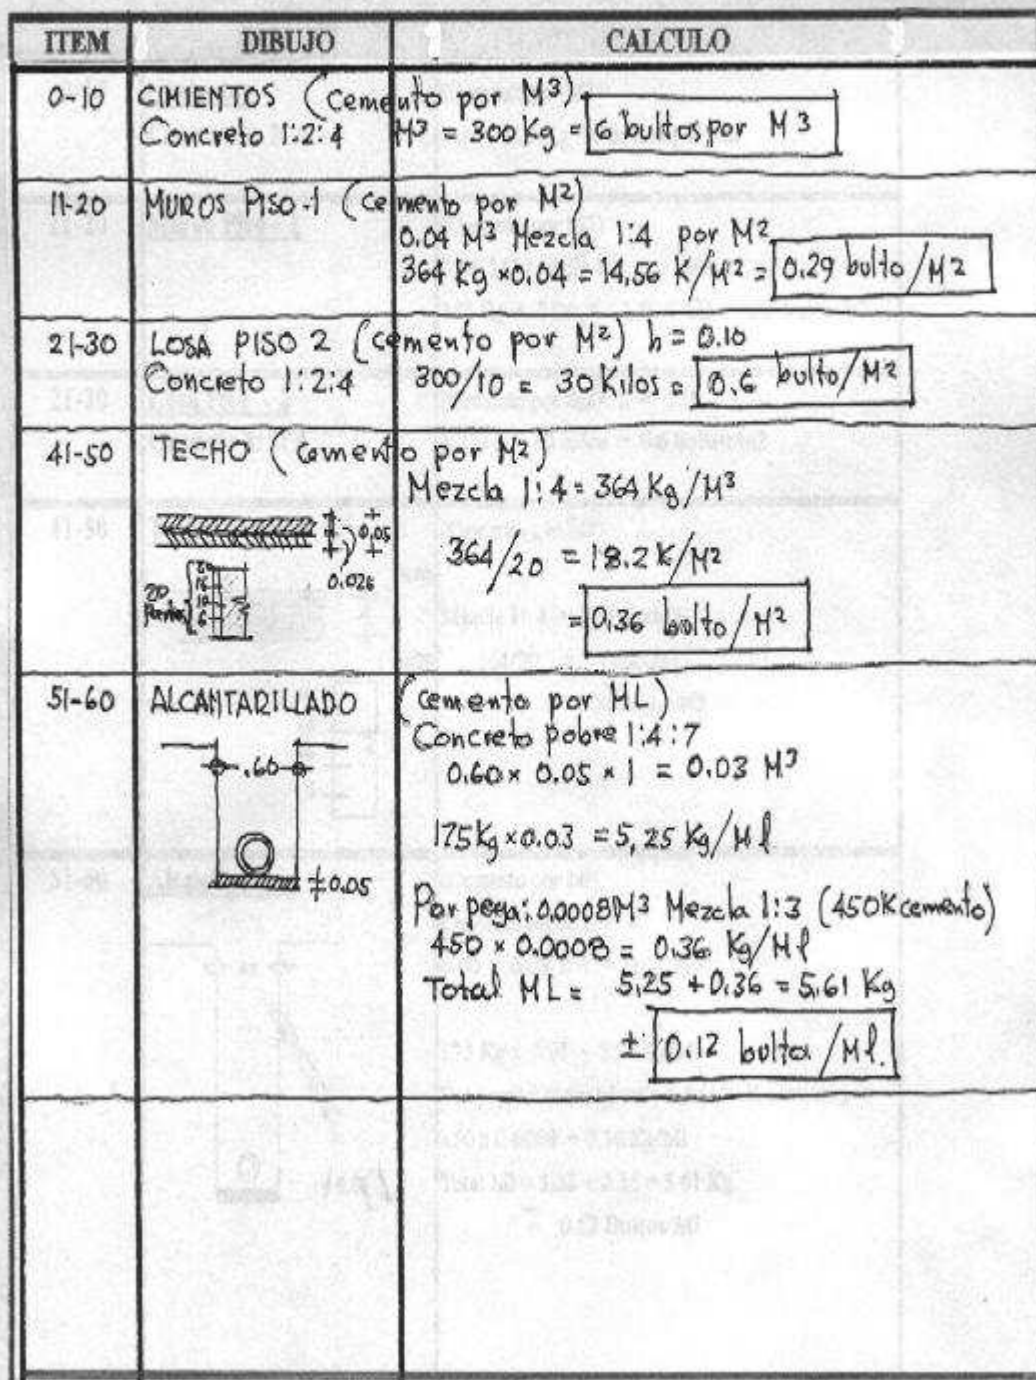 ITEM DIBUJO CALCULO
0-10 CIMIENTOS (Cemento por M3)
Concreto 1:2:4 M3 = 300 Kg = 6 bultos por M3
11-20 MUROS PISO-1 (cemento por M2)
0.04 M3 Mezcla 1:4 por M2
364 Kg x0.04 = 14,56 K/M2 = 0.29 bulto/M2
21-30 LOSA PISO 2 (cemento por M2) h = 0.10
Concreto 1:2:4 300/10 = 30 Kilos = 0.6 bulto/M2
41-50 TECHO (cemento por M2)
Mezcla 1:4 = 364 Kg/M3
0.05
0.026
364/20 = 18.2 K/M2
20
10
6
20
= 0,36 bulto/M2
51-60 ALCANTARILLADO (cemento por ML)
Concreto pobre 1:4:7
.60
0.60 x 0.05 x 1 = 0.03 M3
175Kg x0.03 = 5,25 Kg/Ml
0.05
Por pega: 0.0008M3 Mezcla 1:3 (450K cemento)
450 x 0.0008 = 0.36 Kg/Ml
Total ML = 5,25 + 0.36 = 5.61 Kg
± 0.12 bulto/Ml.